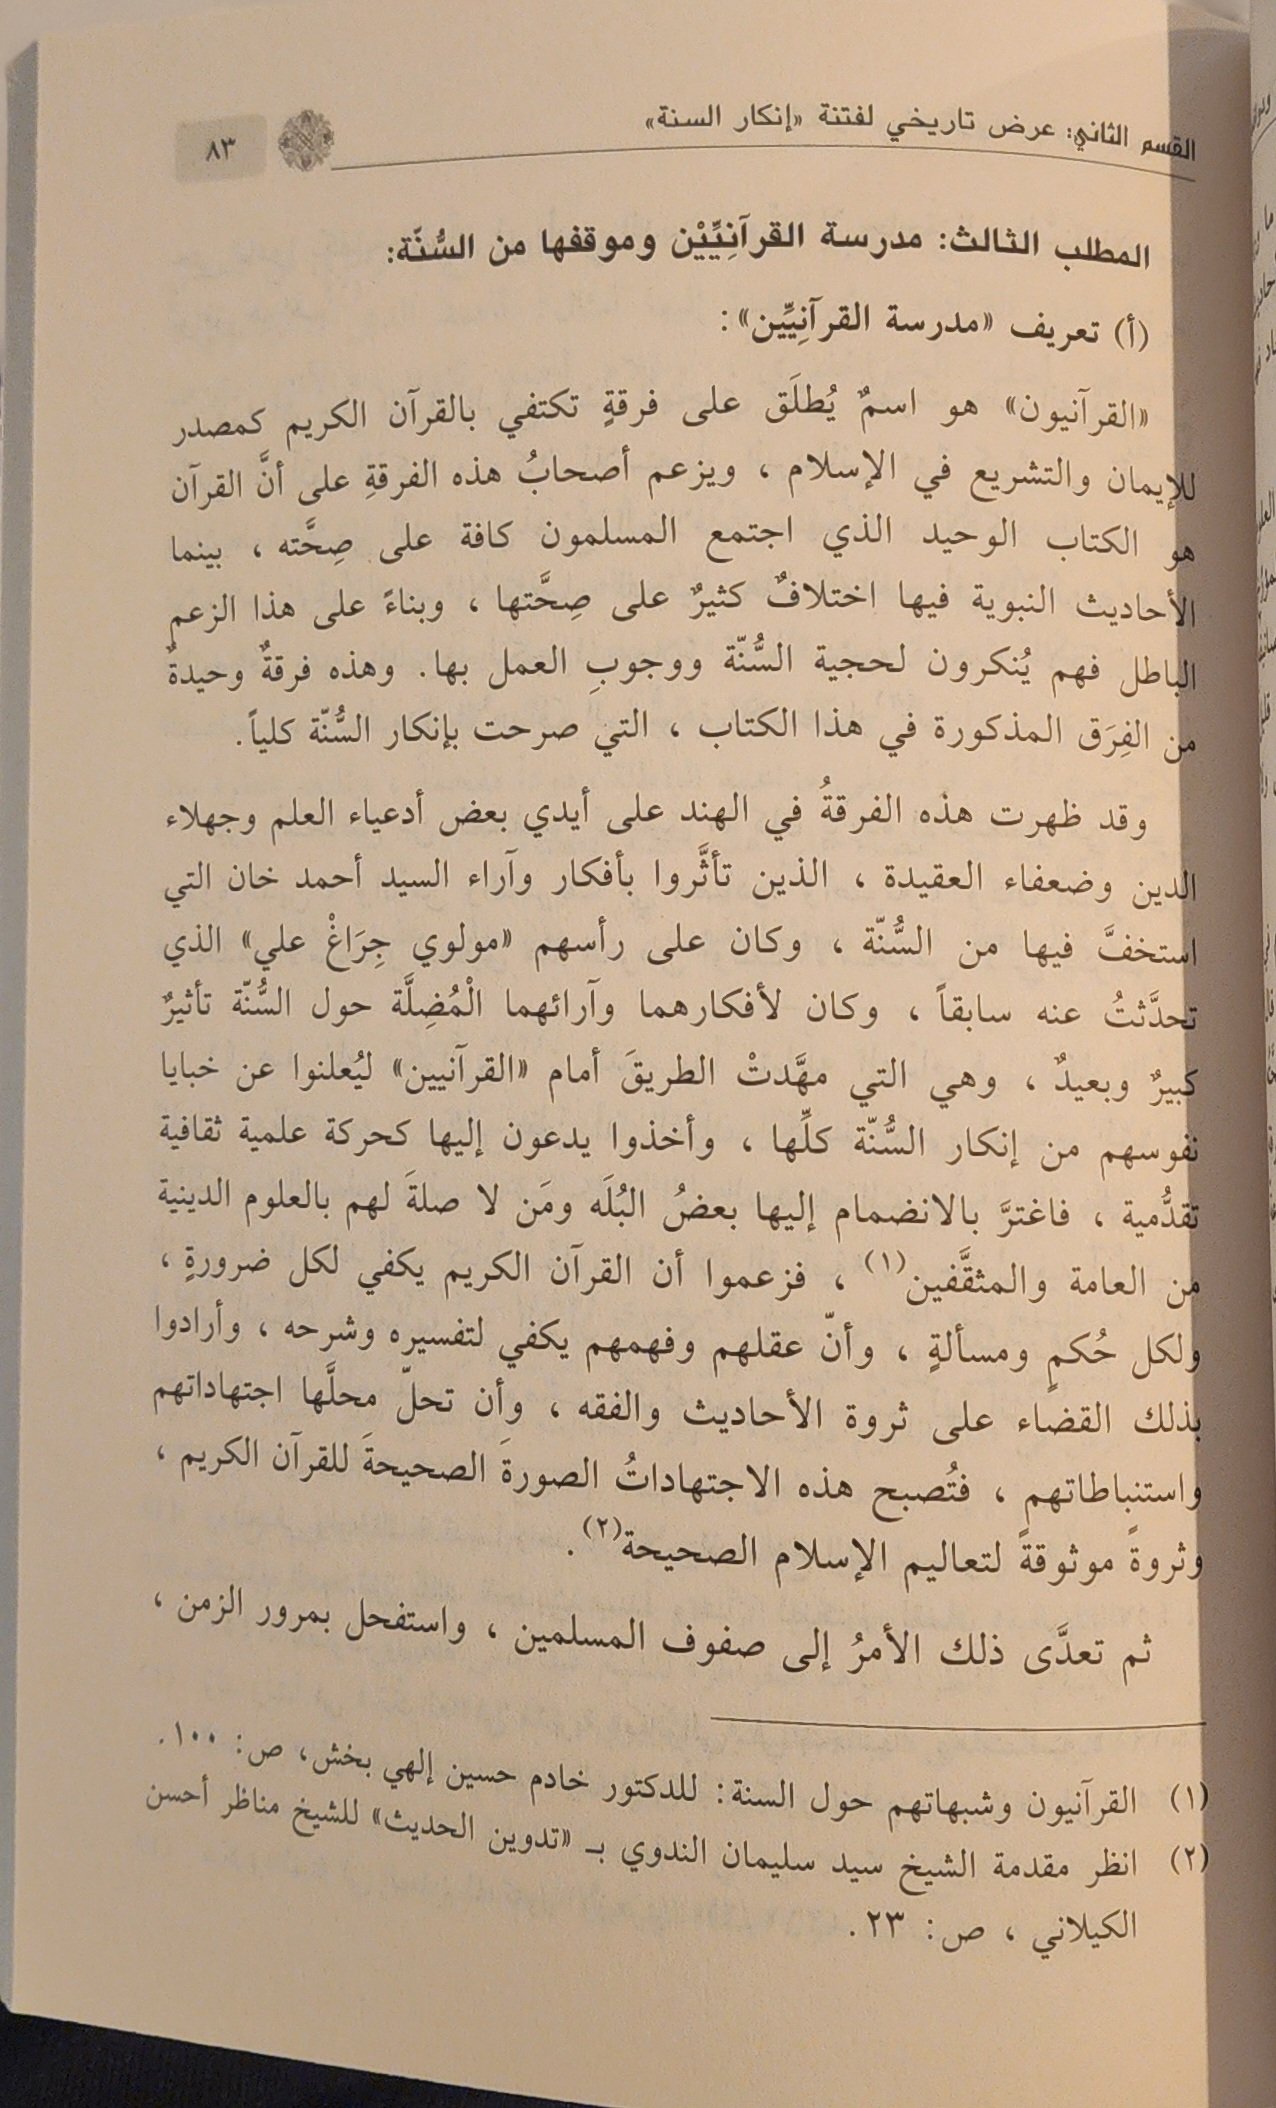 القسم الثاني: عرض تاريخي لفتنة «إنكار السنة»
٨٣
المطلب الثالث: مدرسة القرآنِيِّيْن وموقفها من السُّنّة:
(أ) تعريف «مدرسة القرآنِيِّين»:
«القرآنيون» هو اسمٌ يُطلَق على فرقةٍ تكتفي بالقرآن الكريم كمصدر
للإيمان والتشريع في الإسلام ، ويزعم أصحابُ هذه الفرقةِ على أنَّ القرآن
هو الكتاب الوحيد الذي اجتمع المسلمون كافة على صِحَّته ، بينما
الأحاديث النبوية فيها اختلافٌ كثيرٌ على صِحَّتها ، وبناءً على هذا الزعم
الباطل فهم يُنكرون لحجية السُّنّة ووجوبِ العمل بها. وهذه فرقةٌ وحيدةٌ
من الفِرَق المذكورة في هذا الكتاب ، التي صرحت بإنكار السُّنّة كلياً.
وقد ظهرت هذه الفرقةُ في الهند على أيدي بعض أدعياء العلم وجهلاء
الدين وضعفاء العقيدة ، الذين تأثَّروا بأفكار وآراء السيد أحمد خان التي
استخفَّ فيها من السُّنّة ، وكان على رأسهم «مولوي جِرَاغْ علي» الذي
تحدَّثتُ عنه سابقاً ، وكان لأفكارهما وآرائهما الْمُضِلَّة حول السُّنّة تأثيرٌ
كبيرٌ وبعيدٌ ، وهي التي مهَّدتْ الطريقَ أمام «القرآنيين» ليُعلنوا عن خبايا
نفوسهم من إنكار السُّنّة كلِّها ، وأخذوا يدعون إليها كحركة علمية ثقافية
تقدُّمية ، فاغترَّ بالانضمام إليها بعضُ البُلَه ومَن لا صلةَ لهم بالعلوم الدينية
من العامة والمثقَّفين(١) ، فزعموا أن القرآن الكريم يكفي لكل ضرورةٍ ،
ولكل حُكمٍ ومسألةٍ ، وأنّ عقلهم وفهمهم يكفي لتفسيره وشرحه ، وأرادوا
بذلك القضاء على ثروة الأحاديث والفقه ، وأن تحلّ محلَّها اجتهاداتهم
واستنباطاتهم ، فتُصبح هذه الاجتهاداتُ الصورةَ الصحيحةَ للقرآن الكريم ،
وثروةً موثوقةً لتعاليم الإسلام الصحيحة(٢).
ثم تعدَّى ذلك الأمرُ إلى صفوف المسلمين ، واستفحل بمرور الزمن ،
(١) القرآنيون وشبهاتهم حول السنة: للدكتور خادم حسين إلهي بخش، ص: ١٠٠.
(٢) انظر مقدمة الشيخ سيد سليمان الندوي بـ «تدوين الحديث» للشيخ مناظر أحسن
الكيلاني ، ص: ٢٣.